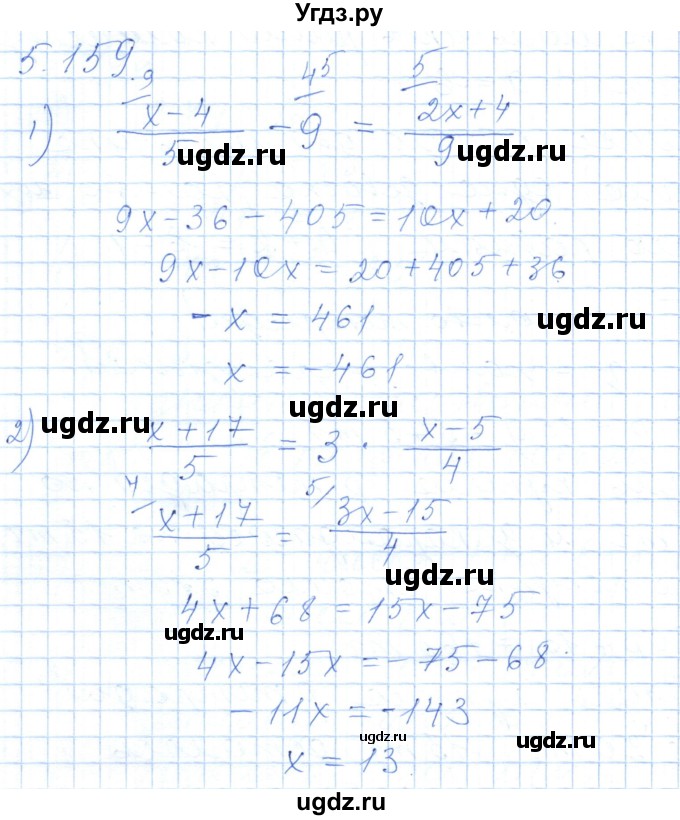 Угдз.ру
5.159.
1) 9/ (x-4)/5 - 45/ 9 = 5/ (2x+4)/9
ugdz.ru ugdz.ru
9x-36-405=10x+20
9x-10x=20+405+36
-x=461
ugdz.ru
x=-461
ugdz.ru
2) (x+17)/5 = 3·(x-5)/4
ugdz.ru
4/ (x+17)/5 = 5/ (3x-15)/4
ugdz.ru
4x+68=15x-75
ugdz.ru
4x-15x=-75-68
-11x=-143
ugdz.ru
x=13
ugdz.ru
ugdz.ru